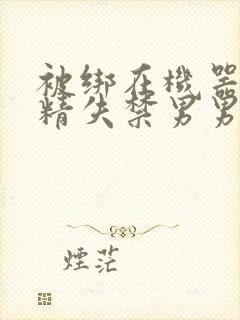 被绑在機器
精失禁男男
煙茫